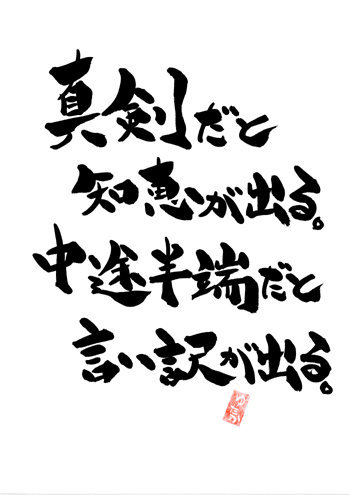 真剣だと
知恵が出る。
中途半端だと
言い訳が出る。